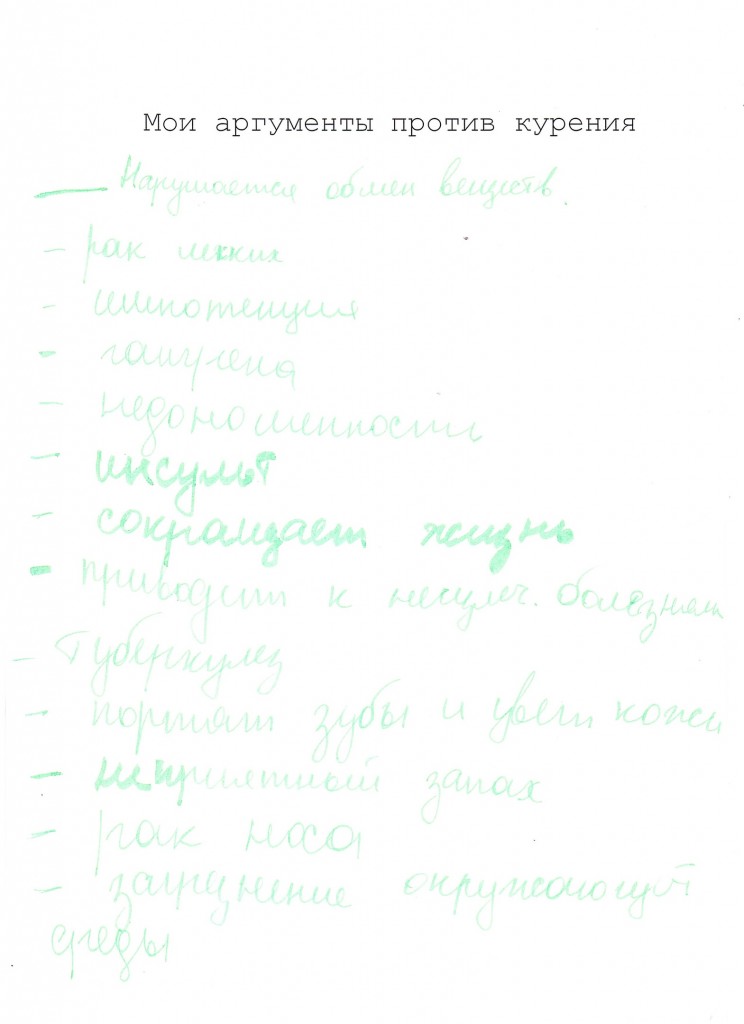 Мои аргументы против курения
— Нарушается обмен веществ.
- рак легких
- импотенция
- гангрена
- недоношенности
- инсульт
- сокращает жизнь
- приводит к неизлеч. болезням
- туберкулез
- портят зубы и цвет кожи
- неприятный запах
- рак носа
- загрязнение окружающей
среды